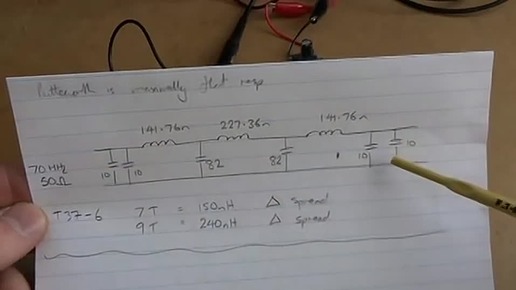 Butterworth is maximally flat resp
141.76n 227.36n 141.76n
70 MHz
50Ω
10 10 82 82 10 10
T37-6 7T = 150nH △ spread
9T = 240nH △ spread